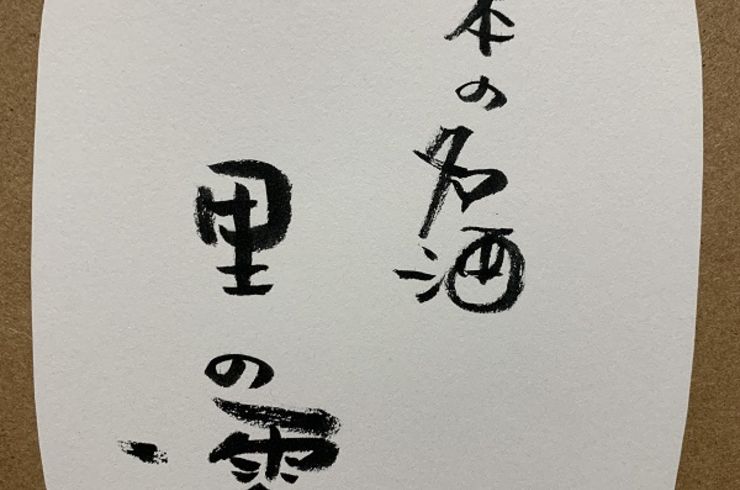 本の名酒
里の